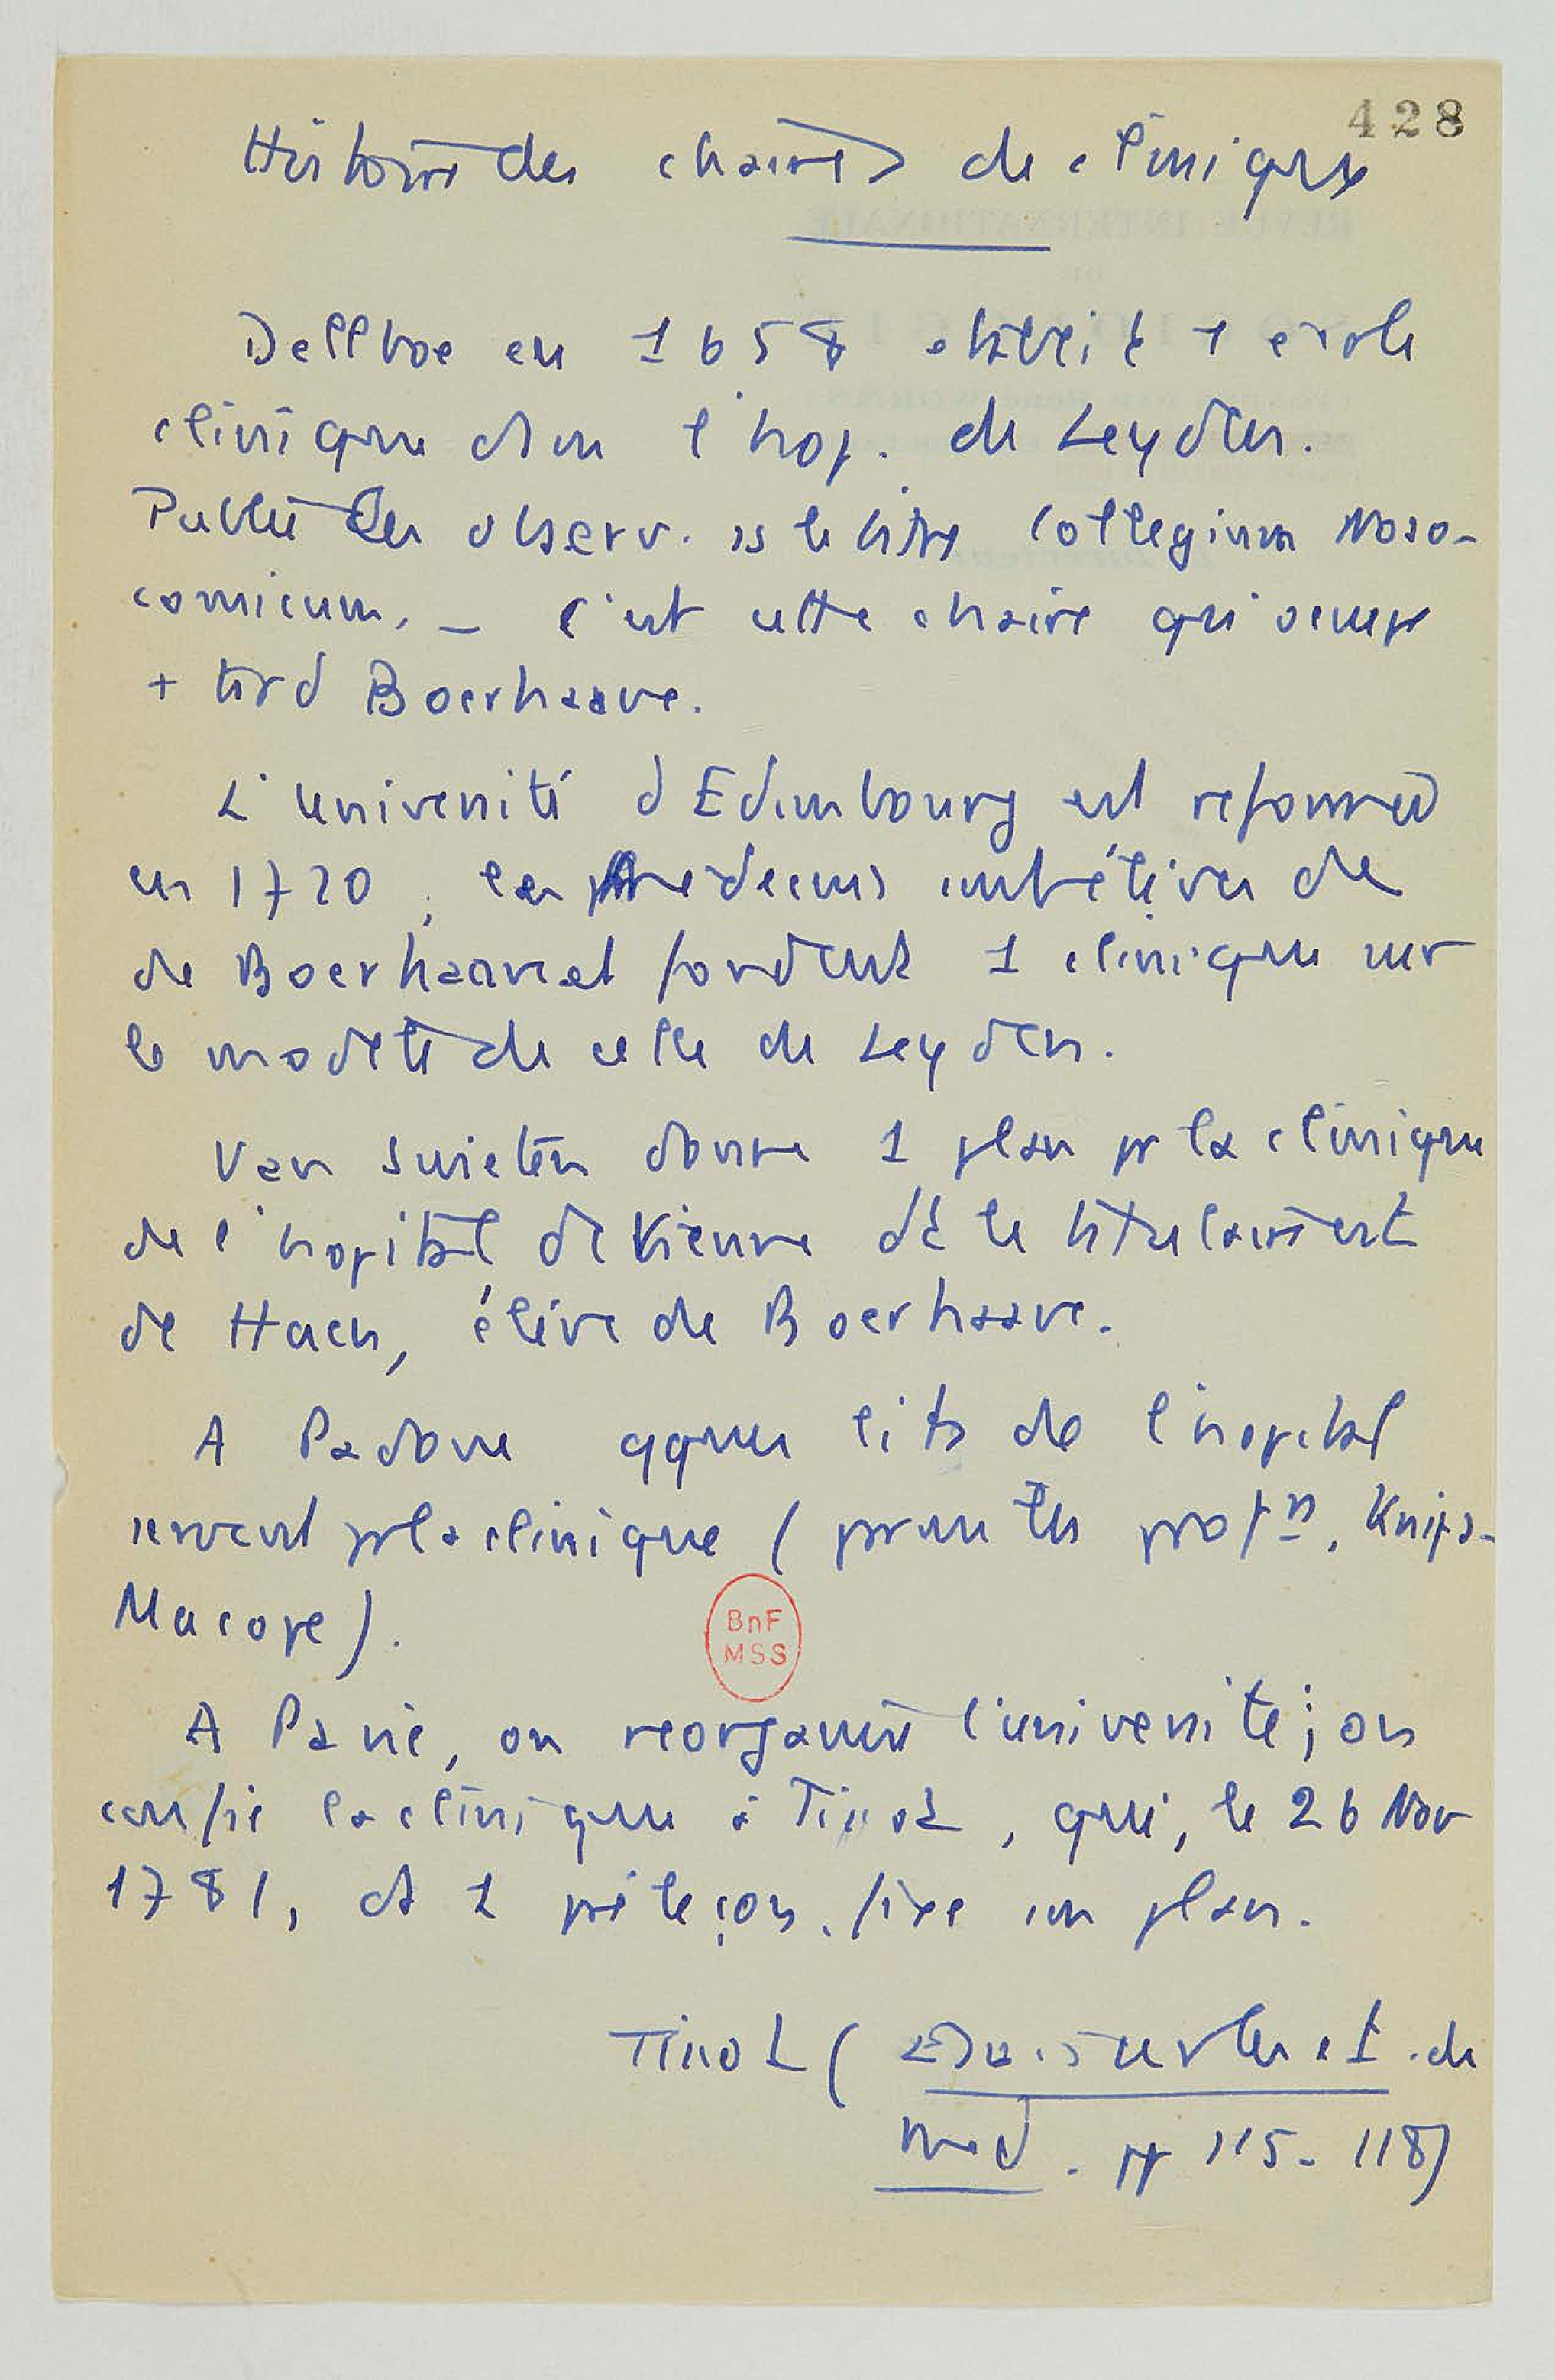 428
Histoire des chaires de clinique
Dellboe en 1658 établit 1 école
clinique dans l'hop. de Leyden.
Publie les observ. ss le titre Collegium Noso-
comicum. _ C'est cette chaire qu'occupe
+ tard Boerhaave.
L'université d'Edimbourg est reformée
en 1720 ; les médecins ont été élèves de
de Boerhaave et fondent 1 clinique sur
le modèle de celle de Leyden.
Van Swieten donne 1 plan pr la clinique
de l'hopital de Vienne dt le titulaire est
de Haen, élève de Boerhaave.
A Padoue qques lits de l'hopital
servent pr la clinique ( profrs, Knips-
Macope).
A Pavie, on reorganise l'université ; on
confie la clinique à Tissot, qui, le 26 Nov
1781, ds 1 pré leçon, fixe un plan.
Tissot ( Essai sur les et. de
med. pp 115-118)
BnF
MSS
REVUE INTERNATIONALE
DE